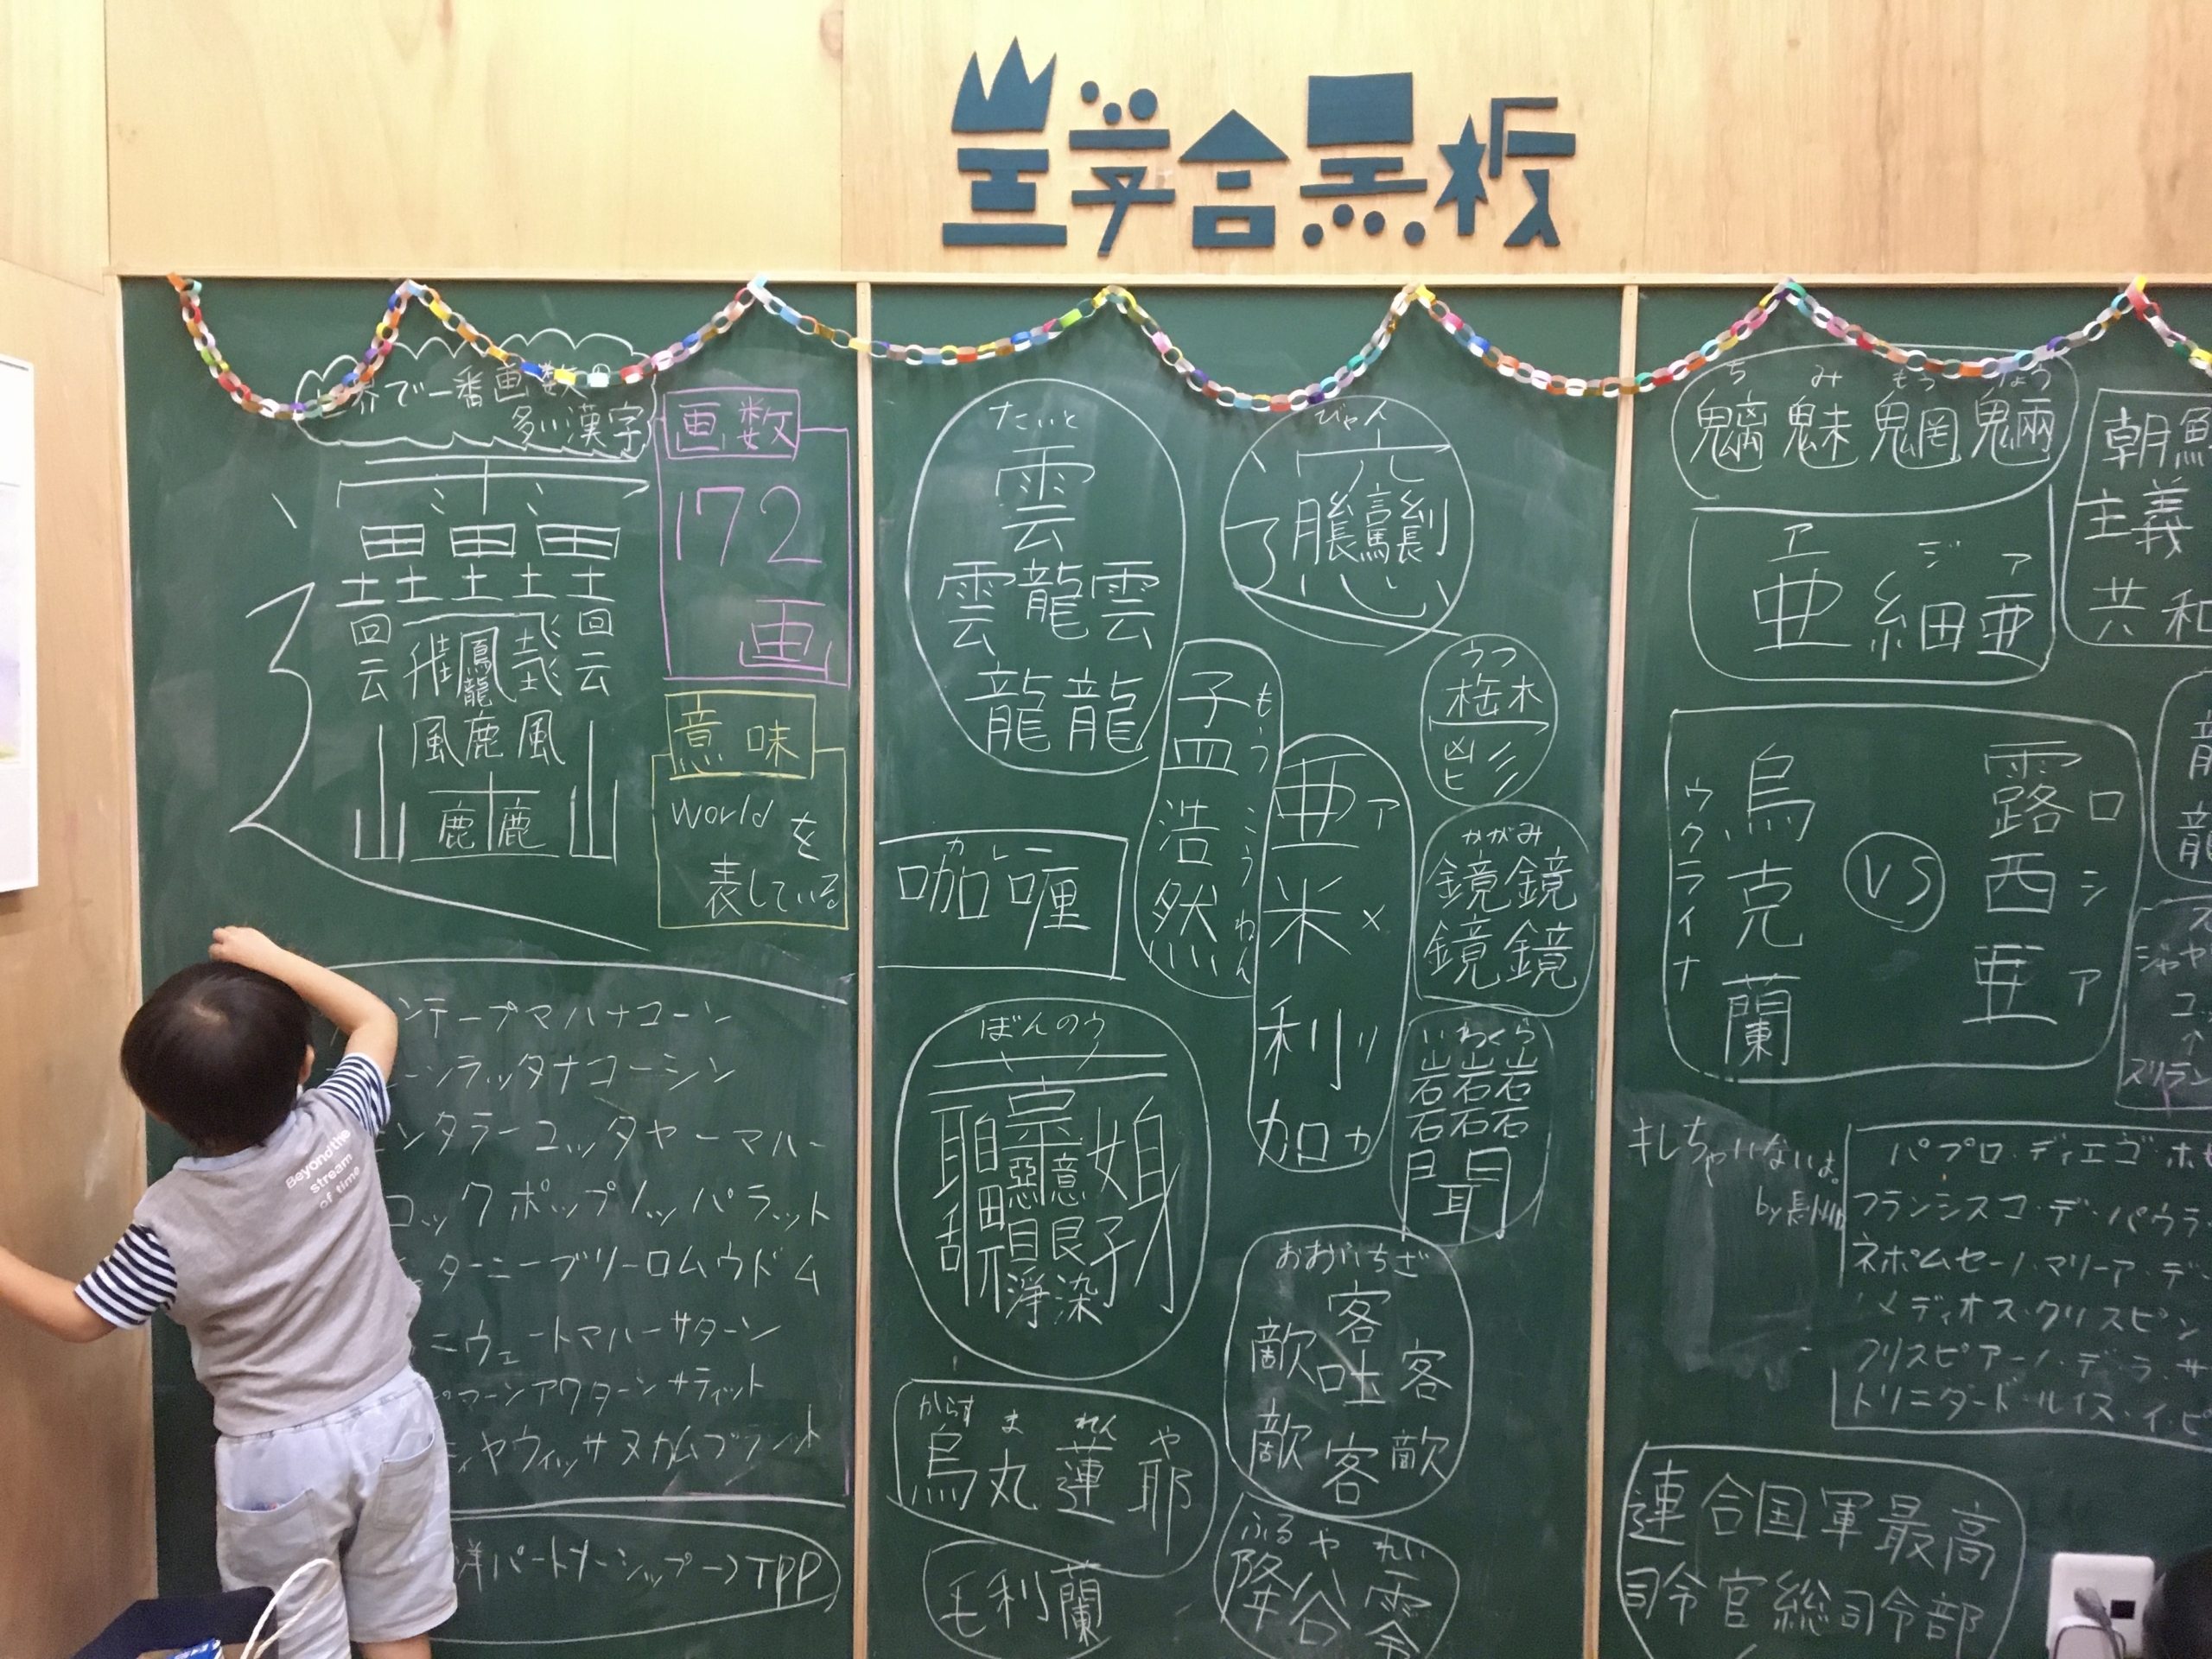 黒板
世界で一番画数
多い漢字
画数
172
画
意味
World を
表している
ンテープマハナコーン
ーンラッタナコーシン
ンタラーユッタヤーマハー
ロックポップノッパラット
ターニーブリーロムウドム
ニウェートマハーサターン
マーンアワターンサティット
ティヤウィッサヌカムプラシット
洋パートナーシップ→TPP
たいと
雲
雲龍雲
龍龍
びゃん
うつ
もうこうねん
孟浩然
カレー
咖喱
アメリカ
亜米利加
かがみ
鏡鏡
鏡鏡
いわくら
岩岩岩
石石石
聞
ぼんのう
おおいちざ
客
歓 吐 客
歓 客 歓
からす ま れん や
烏丸蓮耶
毛利蘭
ふる や れい
降谷零
ち み もう りょう
魑魅魍魎
ア ジ ア
亜細亜
ウクライナ
烏克蘭
VS
露西亜
ロシア
朝鮮
主義
共和
龍
龍
スリラン
キレちゃいないよ。
by長州
パブロ・ディエゴ・ホセ
フランシスコ・デ・パウラ
ネポムセーノ・マリーア・デ
レメディオス・クリスピン
クリスピアーノ・デ・ラ・サ
トリニダード・ルイス・イ・ピ
連合国軍最高
司令官総司令部
Beyond the
stream
of time